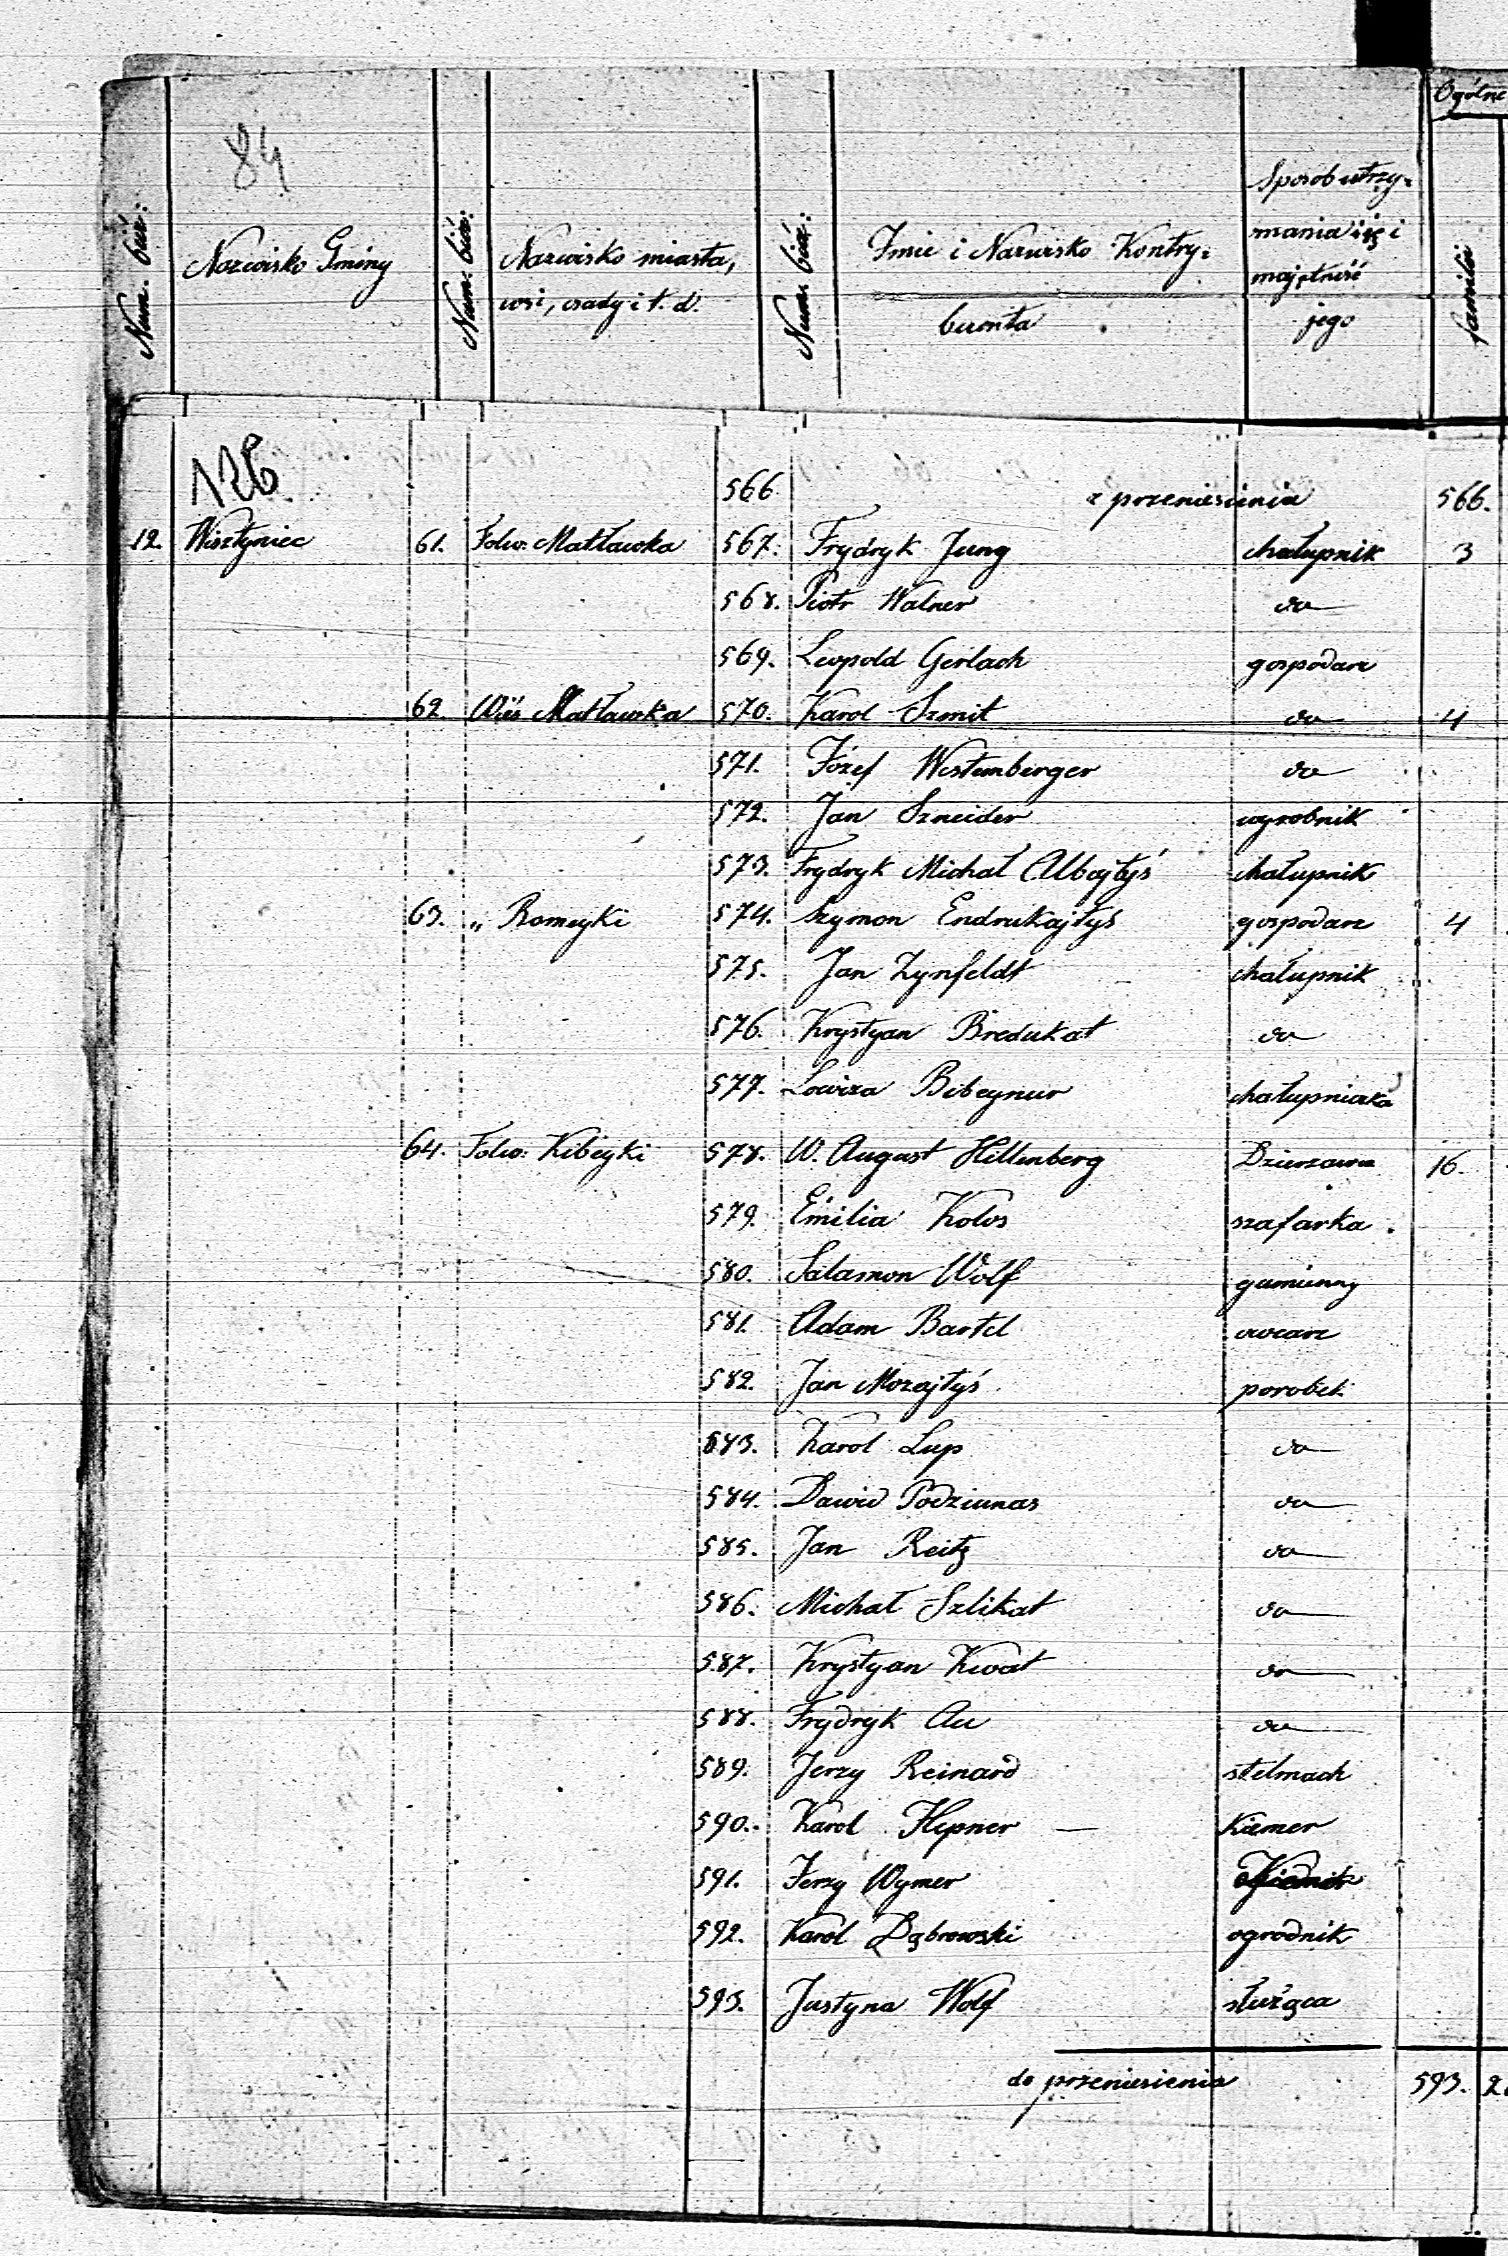 84
Ogólne
Num. bież:
Nazwisko Gminy
Num. bież:
Nazwisko miasta,
wsi, osady i t. d.
Num. bież:
Imie i Nazwisko Kontry-
buenta
Sposób utrzy-
mania się i
majętność
jego
familii
126
566 z przeniesienia 566.
12. Wisztyniec 61. Folw: Matławka 567. Frydryk Jung chałupnik 3
568. Piotr Walner do
569. Leopold Gerlach gospodarz
62. Wieś Matławka 570. Karol Szmit do 4
571. Józef Westemberger do
572. Jan Szneider wyrobnik
573. Frydryk Michał Albajtyś chałupnik
63. „ Romeyki 574. Szymon Endrukajtyś gospodarz 4
575. Jan Zynfeldt chałupnik
576. Krystyan Bredukat do
577. Lowiza Bibeynur chałupniczka
64. Folw: Kibeyki 578. W. August Hillenberg Dzierzawca 16.
579. Emilia Kolos szafarka
580. Salamon Wolf gumienny
581. Adam Bartel owcarz
582. Jan Mozajtyś parobek
583. Karol Lup do
584. Dawid Podziunas do
585. Jan Reitz do
586. Michał Szlikat do
587. Krystyan Kwat do
588. Frydryk Au do
589. Jerzy Reinard stelmach
590. Karol Hepner
591. Jerzy Wymer
592. Karol Dąbrowski ogrodnik
593. Justyna Wolf służąca
do przeniesienia 593. 2